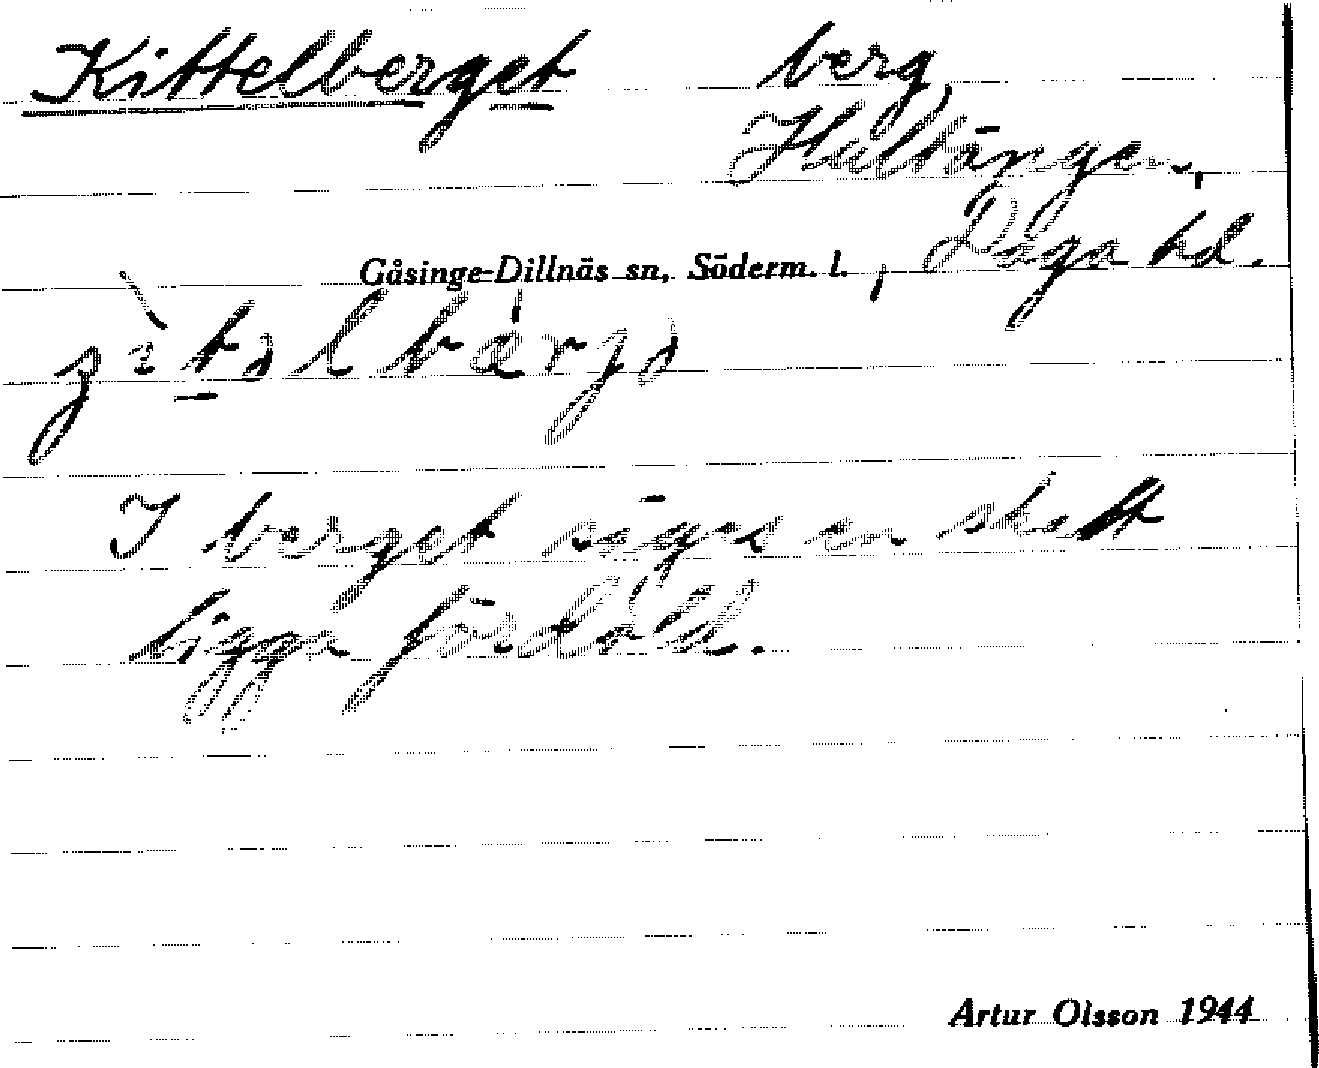 Kittelberget berg,
Hultängen,
Gåsinge-Dillnäs sn, Söderm. l., Daga hd.
I berget säges en skatt
ligga fördold.
Artur Olsson 1944